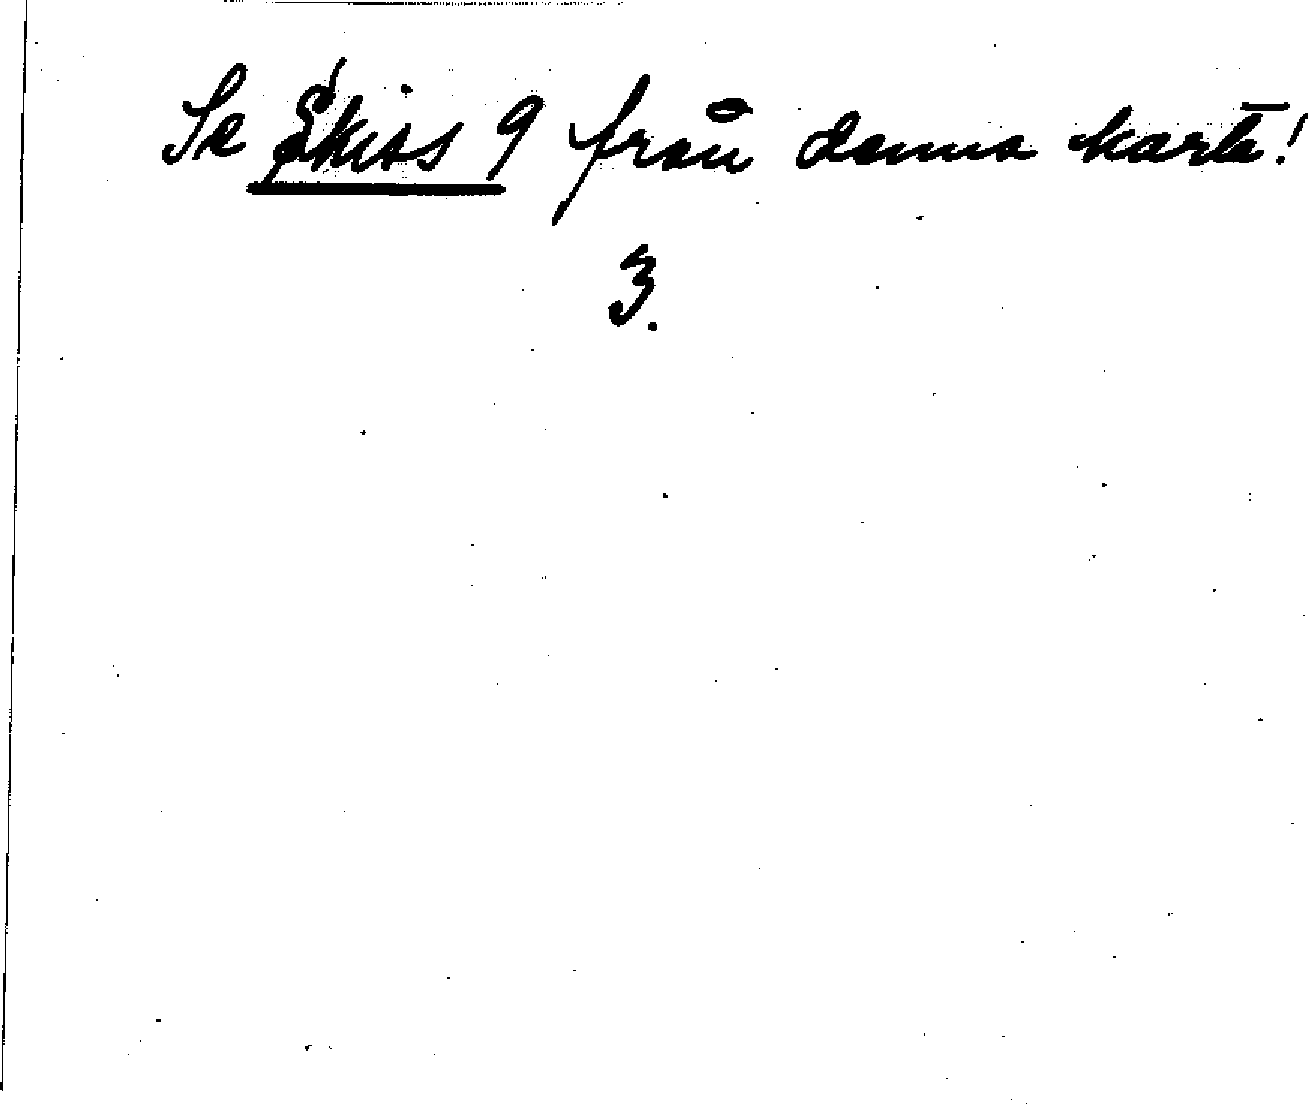 Se Skiss 9 från denna karta!
3.